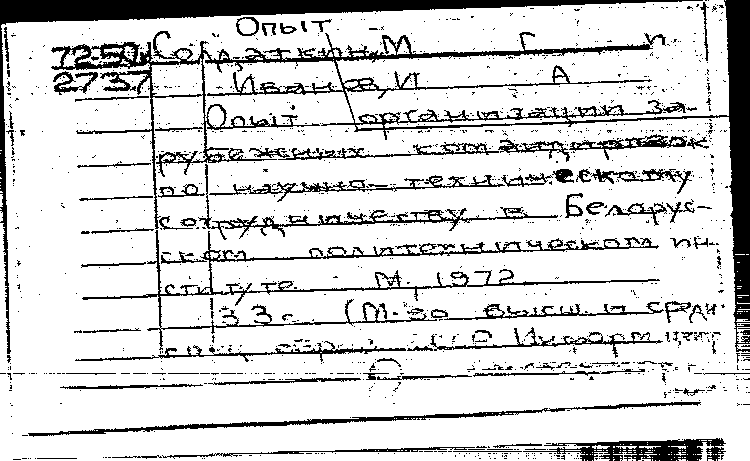 Опыт
72-50
Солдаткин, М Г и
2737
Иванов, И А
Опыт организации за-
рубежных командировок
по научно-техническому
сотрудничеству в Белорус-
ском политехническом ин-
ституте М, 1972
33с (М-во высш и средн
спец обр. Информ центр